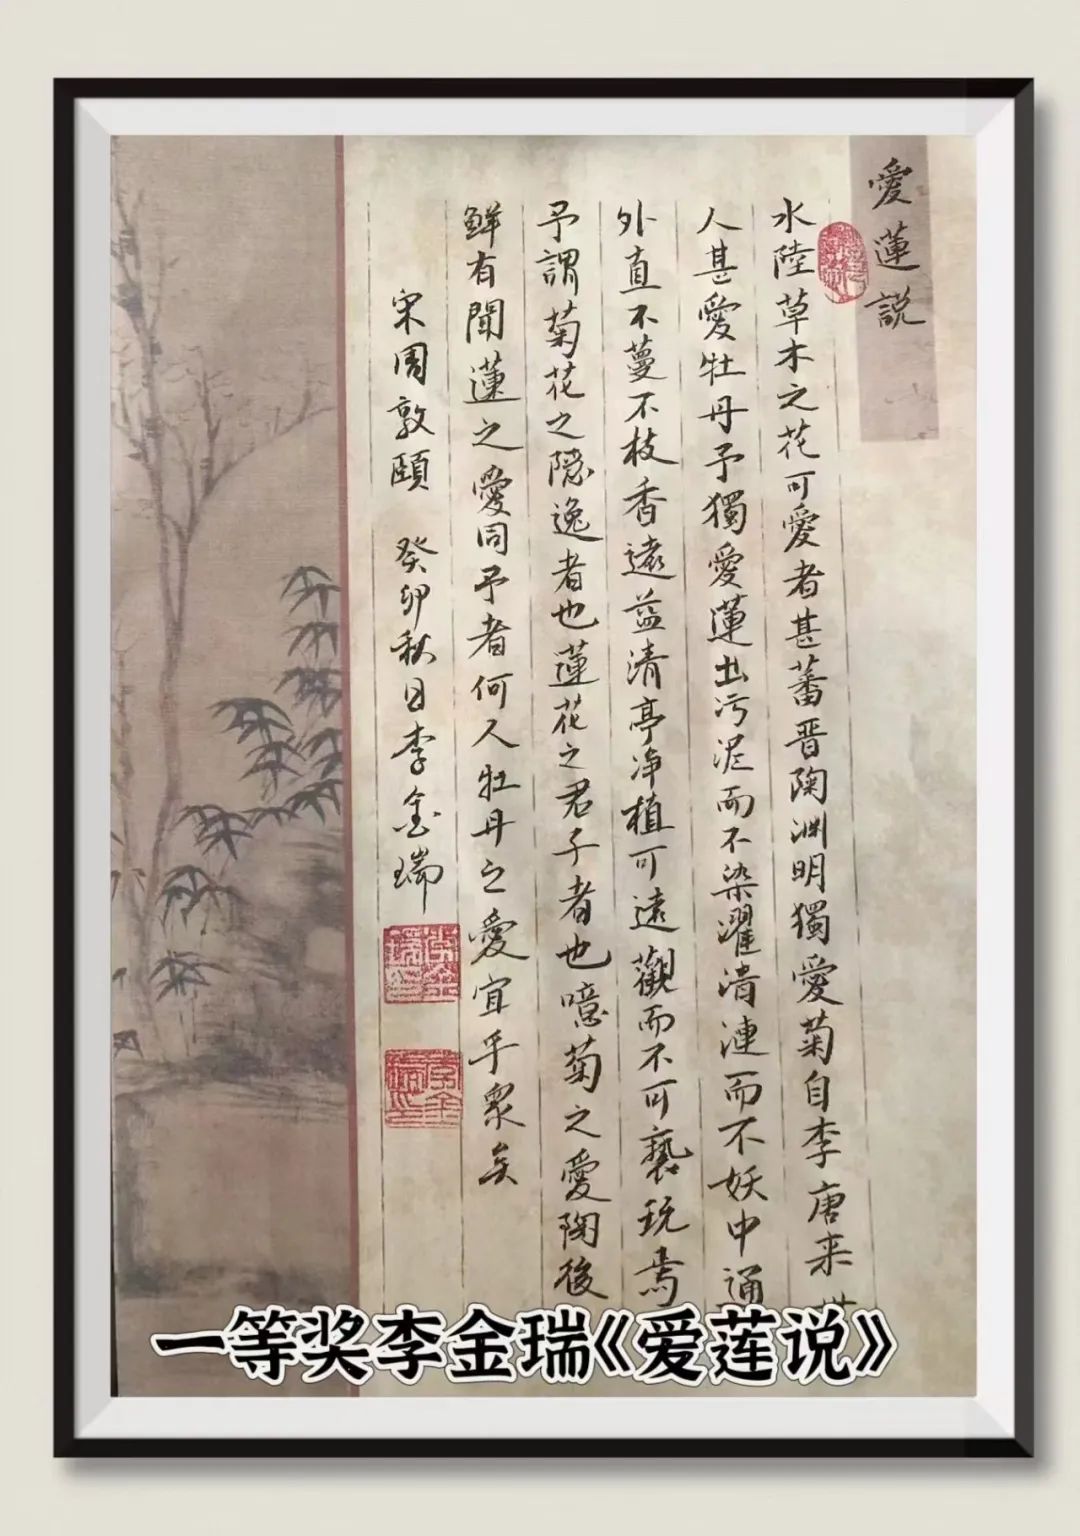 愛蓮説
水陸草木之花可愛者甚蕃晋陶渊明獨愛菊自李唐来世
人甚愛牡丹予獨愛蓮出污泥而不染濯清漣而不妖中通
外直不蔓不枝香遠益清亭净植可遠觀而不可褻玩焉
予謂菊花之隐逸者也蓮花之君子者也噫菊之愛陶後
鮮有聞蓮之愛同予者何人牡丹之愛宜乎衆矣
宋周敦頤 癸卯秋日李金瑞
一等奖李金瑞《爱莲说》